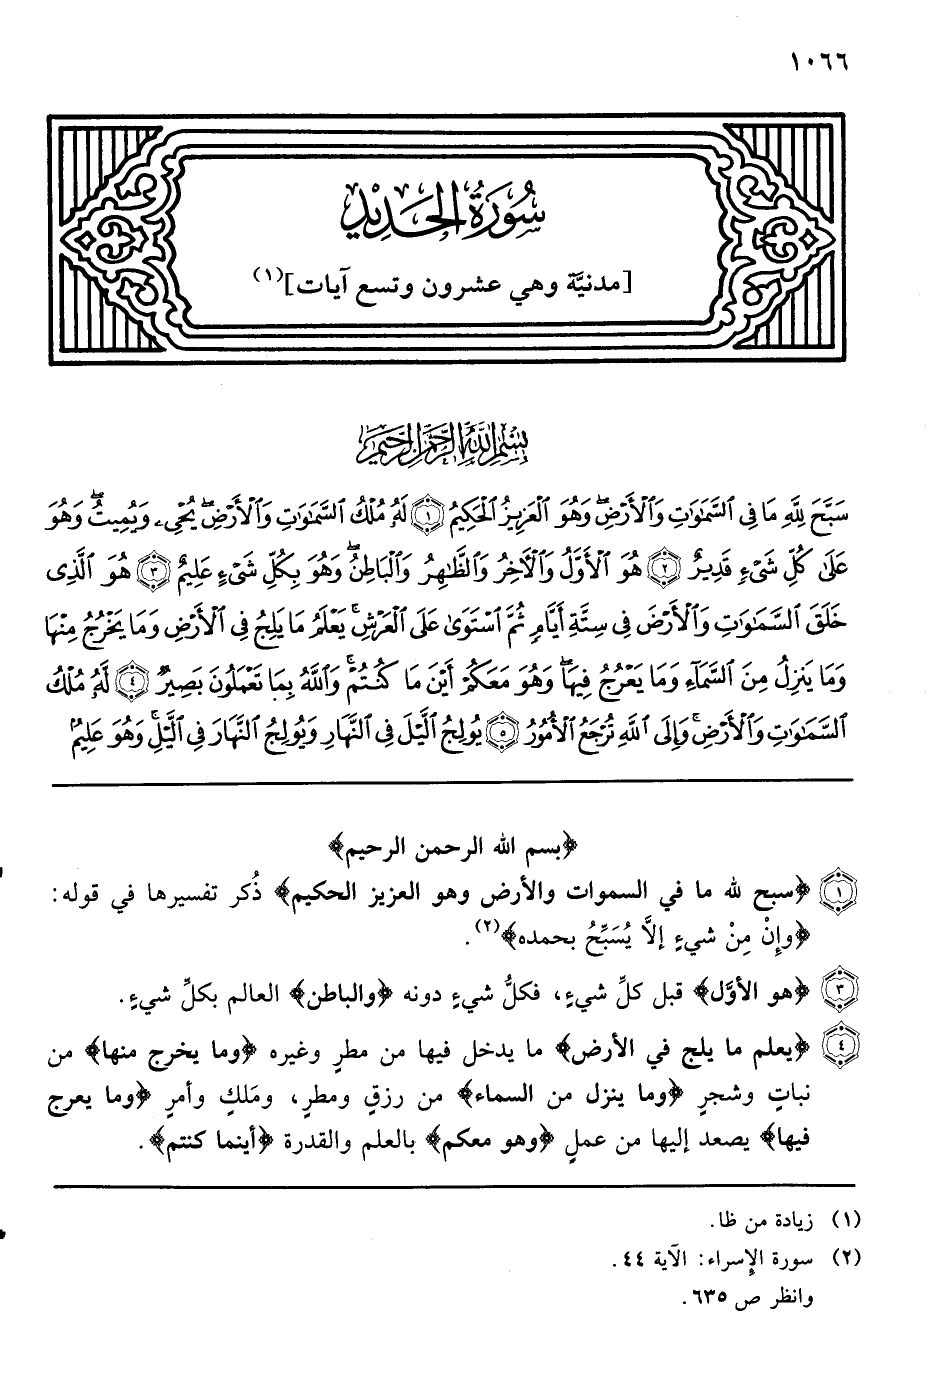 ١٠٦٦
سُورَةُ الحَدِيْدِ
[مدنيَّة وهي عشرون وتسع آيات](١)
بِسْمِ اللَّهِ الرَّحْمَٰنِ الرَّحِيمِ
سَبَّحَ لِلَّهِ مَا فِى ٱلسَّمَٰوَٰتِ وَٱلْأَرْضِ ۖ وَهُوَ ٱلْعَزِيزُ ٱلْحَكِيمُ ١ لَهُۥ مُلْكُ ٱلسَّمَٰوَٰتِ وَٱلْأَرْضِ ۖ يُحْىِۦ وَيُمِيتُ ۖ وَهُوَ
عَلَىٰ كُلِّ شَىْءٍ قَدِيرٌ ٢ هُوَ ٱلْأَوَّلُ وَٱلْءَاخِرُ وَٱلظَّٰهِرُ وَٱلْبَاطِنُ ۖ وَهُوَ بِكُلِّ شَىْءٍ عَلِيمٌ ٣ هُوَ ٱلَّذِى
خَلَقَ ٱلسَّمَٰوَٰتِ وَٱلْأَرْضَ فِى سِتَّةِ أَيَّامٍ ثُمَّ ٱسْتَوَىٰ عَلَى ٱلْعَرْشِ ۚ يَعْلَمُ مَا يَلِجُ فِى ٱلْأَرْضِ وَمَا يَخْرُجُ مِنْهَا
وَمَا يَنزِلُ مِنَ ٱلسَّمَآءِ وَمَا يَعْرُجُ فِيهَا ۖ وَهُوَ مَعَكُمْ أَيْنَ مَا كُنتُمْ ۚ وَٱللَّهُ بِمَا تَعْمَلُونَ بَصِيرٌ ٤ لَّهُۥ مُلْكُ
ٱلسَّمَٰوَٰتِ وَٱلْأَرْضِ ۚ وَإِلَى ٱللَّهِ تُرْجَعُ ٱلْأُمُورُ ٥ يُولِجُ ٱلَّيْلَ فِى ٱلنَّهَارِ وَيُولِجُ ٱلنَّهَارَ فِى ٱلَّيْلِ ۚ وَهُوَ عَلِيمٌۢ
﴿بسم الله الرحمن الرحيم﴾
١ ﴿سبح لله ما في السموات والأرض وهو العزيز الحكيم﴾ ذُكر تفسيرها في قوله:
﴿وإِنْ مِنْ شيءٍ إلاَّ يُسَبِّحُ بحمده﴾(٢).
٣ ﴿هو الأوَّل﴾ قبل كلِّ شيءٍ، فكلُّ شيءٍ دونه ﴿والباطن﴾ العالم بكلِّ شيءٍ.
٤ ﴿يعلم ما يلج في الأرض﴾ ما يدخل فيها من مطرٍ وغيره ﴿وما يخرج منها﴾ من
نباتٍ وشجرٍ ﴿وما ينزل من السماء﴾ من رزقٍ ومطرٍ، ومَلكٍ وأمرٍ ﴿وما يعرج
فيها﴾ يصعد إليها من عملٍ ﴿وهو معكم﴾ بالعلم والقدرة ﴿أينما كنتم﴾.
(١) زيادة من ظا.
(٢) سورة الإسراء: الآية ٤٤.
وانظر ص ٦٣٥.